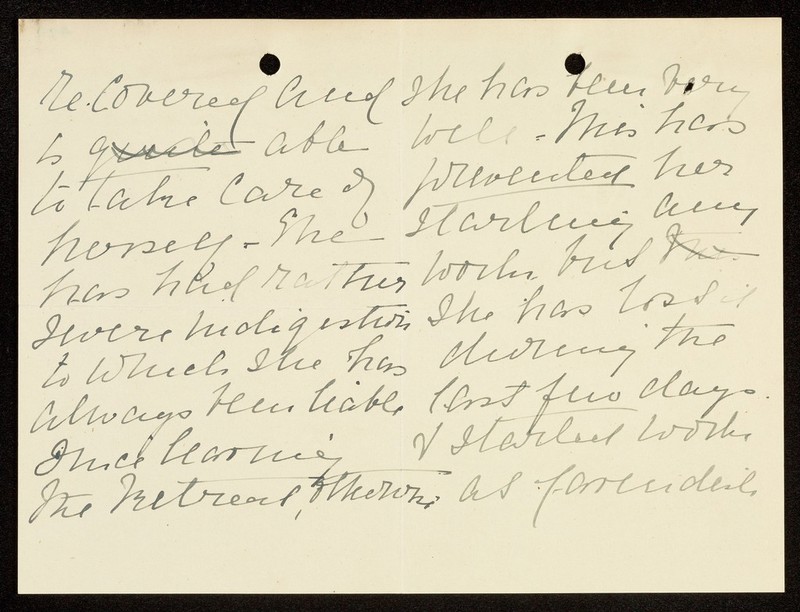 recovered and
is quite able
to take care of
herself - She
has had rather
severe indigestion
to which she has
always been liable
since leaving
the Retreat, otherwise
she has been very
well - This has
prevented her
starting any
work but the
she has lost it
during the
last few days
& started work
as